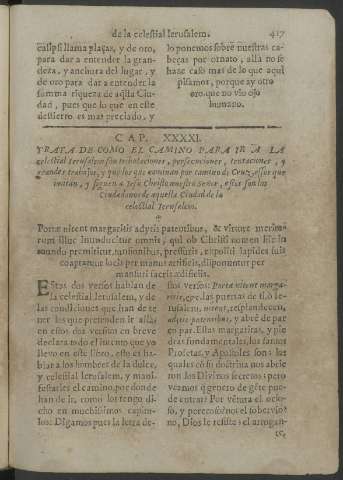 de la celestial Ierusalem. 417
essipsi llama plaças, y de oro,
para dar a entender la gran-
deza, y anchura del lugar, y
de oro para dar a entender la
summa riqueza de aq̃lla Ciu-
dad, pues que lo que en este
destierro es mas preciado, y
lo ponemos sobre nuestras ca-
beças por ornato, allà no se
haze caso mas de lo que aquí
pisamos, porque ay otro
oro, que no vio ojo
humano.
CAP. XXXXI.
TRATA DE COMO EL CAMINO PARA IR A LA
celestial Ierusalem son tribulaciones, persecuciones, tentaciones, y
grandes trabajos, y que los que caminan por camino de Cruz, essos que
imitan, y siguen a Iesu Christo nuestro Señor, essos son los
Ciudadanos de aquella Ciudad de la
celestial Ierusalem.
Portæ nitent margaritis adytis patentibus, & virtute merito-
rum illuc introducitur omnis, qui ob Christi nomen hic in
mundo premititur, tunsionibus, pressuris, expoliti lapides suis
coaptantur locis per manus artificis, disponuntur per
mansuri sacris ædificiis.
Estas dos versos hablan de
la celestial Ierusalem, y de
las condiciones que han de te-
ner los que pretenden ir allà:
en estos dos versitos en breve
declara todo el intento que yo
llevo en este libro, esto es ha-
blar a los hombres de la dulce,
y celestial Ierusalem, y mani-
festarles el camino, por donde
han de ir, como los tengo di-
cho en muchissimos capitu-
los: Digamos pues la letra de-
stos versos: Portæ nitent marga-
ritis, &c. las puertas de la Ie-
rusalem, nitent, resplandecen,
adytis patentibus, y abrè de par
en par. Ellas margaritas, y pie
dras fundamentales, los santos
Profetas, y Apostoles son: los
quales cõ su doctrina nos abriè
ron los Divinos secretos: pero
veamos q̃ genero de gẽte pue-
de entrar: Por vẽtura el ocio-
so, y perezoso? no el sobervio?
no, Dios le resiste: el arrogan-
te,